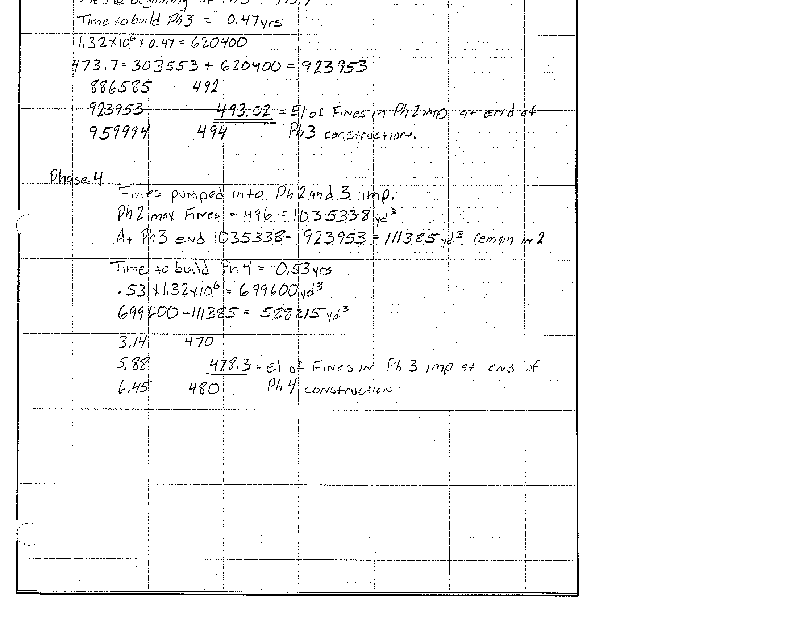 Time to build Ph3 = 0.47yrs
1.32x10⁶ x 0.47 = 620400
473.7 = 303553 + 620400 = 923953
886585 492
923953 493.02 = El of Fines in Ph2 imp at end of
959994 494 Ph3 construction.
Phase 4
Fines pumped into Ph2 and 3 imp.
Ph2 max Fines = 496 = 1035338yd³
At Ph3 end 1035338 - 923953 = 111385yd³ remain in 2
Time to build Ph4 = 0.53yrs
.53 x 1.32x10⁶ = 699600yd³
699600 - 111385 = 588215yd³
3.14 470
5.88 478.3 = El of Fines in Ph3 imp at end of
6.45 480 Ph4 construction